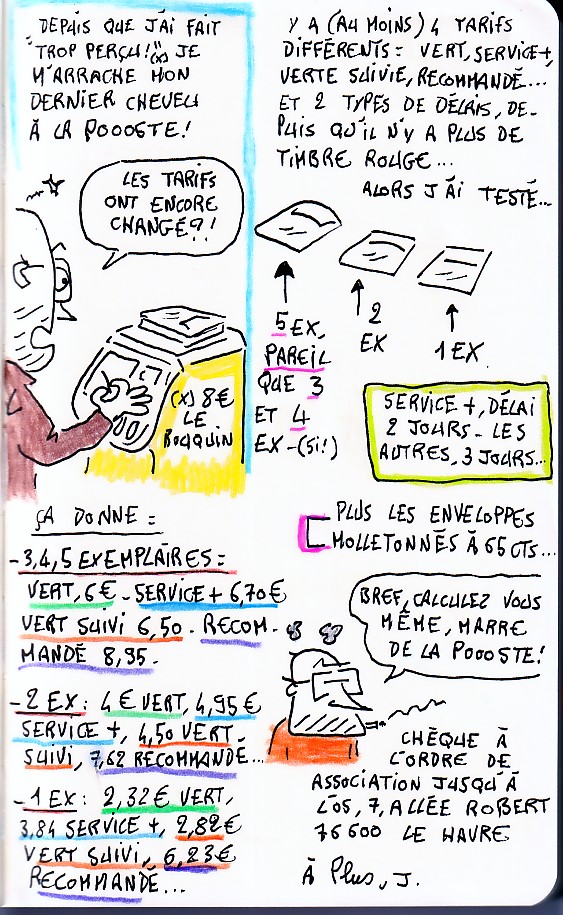 DEPUIS QUE J'AI FAIT
"TROP PERÇU!"(x) JE
M'ARRACHE MON
DERNIER CHEVEU
À LA POOOSTE!
LES TARIFS
ONT ENCORE
CHANGÉ?!
(x) 8€
LE
BOUQUIN
Y A (AU MOINS) 4 TARIFS
DIFFÉRENTS: VERT, SERVICE+,
VERTE SUIVIE, RECOMMANDÉ...
ET 2 TYPES DE DÉLAIS, DE-
PUIS QU'IL N'Y A PLUS DE
TIMBRE ROUGE...
ALORS J'AI TESTÉ...
5 EX,
PAREIL
QUE 3
ET 4
EX-(SI!)
2
EX
1 EX.
SERVICE +, DÉLAI
2 JOURS - LES
AUTRES, 3 JOURS...
PLUS LES ENVELOPPES
MOLLETONNÉS À 65 CTS...
ÇA DONNE =
-3,4,5 EXEMPLAIRES=
VERT, 6€ - SERVICE+ 6,70€
VERT SUIVI 6,50 - RECOM-
MANDÉ 8,95-
-2 EX: 4€ VERT, 4,95€
SERVICE +, 4,50 VERT-
SUIVI, 7,62 RECOMMANDÉ...
-1 EX: 2,32€ VERT,
3,84 SERVICE +, 2,82€
VERT SUIVI, 6,23€
RECOMMANDÉ...
BREF, CALCULEZ VOUS
MÊME, MARRE
DE LA POOOSTE!
CHÈQUE À
L'ORDRE DE
ASSOCIATION JUSQU'À
L'OS, 7, ALLÉE ROBERT
76600 LE HAVRE
À Plus, J.